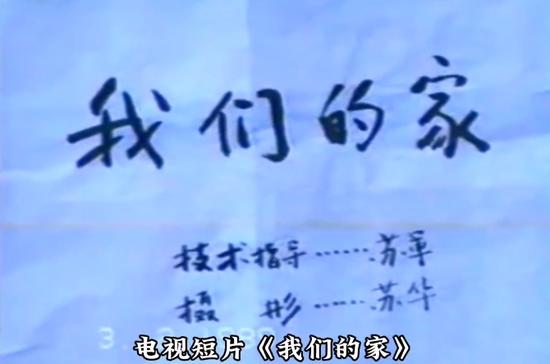 我们的家
技术指导……苏军
摄 影……苏华
电视短片《我们的家》